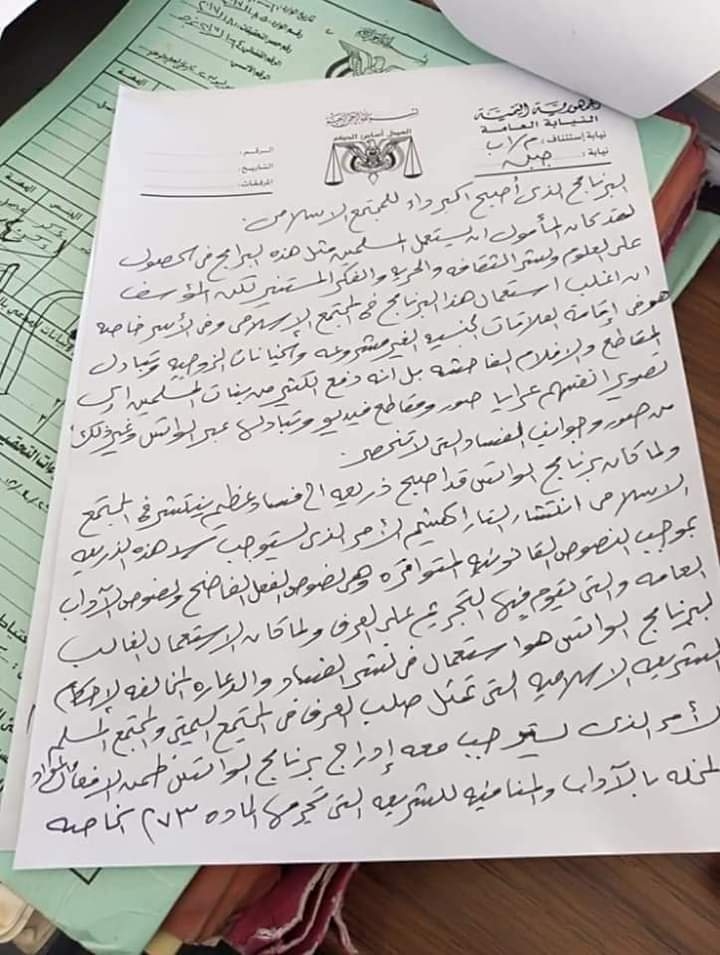 الجمهورية اليمنية
النيابة العامة
نيابة إستئناف: م/اب
نيابة: جبلة
بسم الله الرحمن الرحيم
العدل أساس الحكم
الرقم:
التاريخ:
المرفقات:
البرنامج الذي أصبح اكبر داء للمجتمع الاسلامي.
لقد كان المأمول ان يستعمل المسلمين مثل هذه البرامج في الحصول
على العلوم ونشر الثقافه والحريه والفكر المستنير لكن المؤسف
ان اغلب استعمال هذا البرنامج في المجتمع الإسلامي وفي الأسر خاصه
هو في إقامة العلاقات الجنسيه الغير مشروعه والخيانات الزوجيه وتبادل
المقاطع والافلام الفاحشه بل انه دفع الكثير من بنات المسلمين إلى
تصوير انفسهم عرايا صور ومقاطع فيديو وتبادلها عبر الواتس وغير ذلك
من صور وجوانب الفساد التي لا تنحصر.
ولما كان برنامج الواتس قد اصبح ذريعه الى فساد عظيم ينتشر في المجتمع
الاسلامي انتشار النار الهشيم الأمر الذي يستوجب سد هذه الذريعه
بموجب النصوص القانونيه المتوافره وهي نصوص الفعل الفاضح ونصوص الآداب
العامه والتي تقوم فيها التجريم على العرف ولما كان الاستعمال الغالب
لبرنامج الواتس هو استعمال في نشر الفساد والدعاره المخالفه لاحكام
الشريعه الاسلاميه التي تمثل صلب العرف في المجتمع اليمني والمجتمع المسلم
الأمر الذي يستوجب معه إدراج برنامج الواتس ضمن الافعال والمواد
المخله بالآداب والمنافيه للشريعه التي تجرمها الماده ٢٧٣ الخاصه